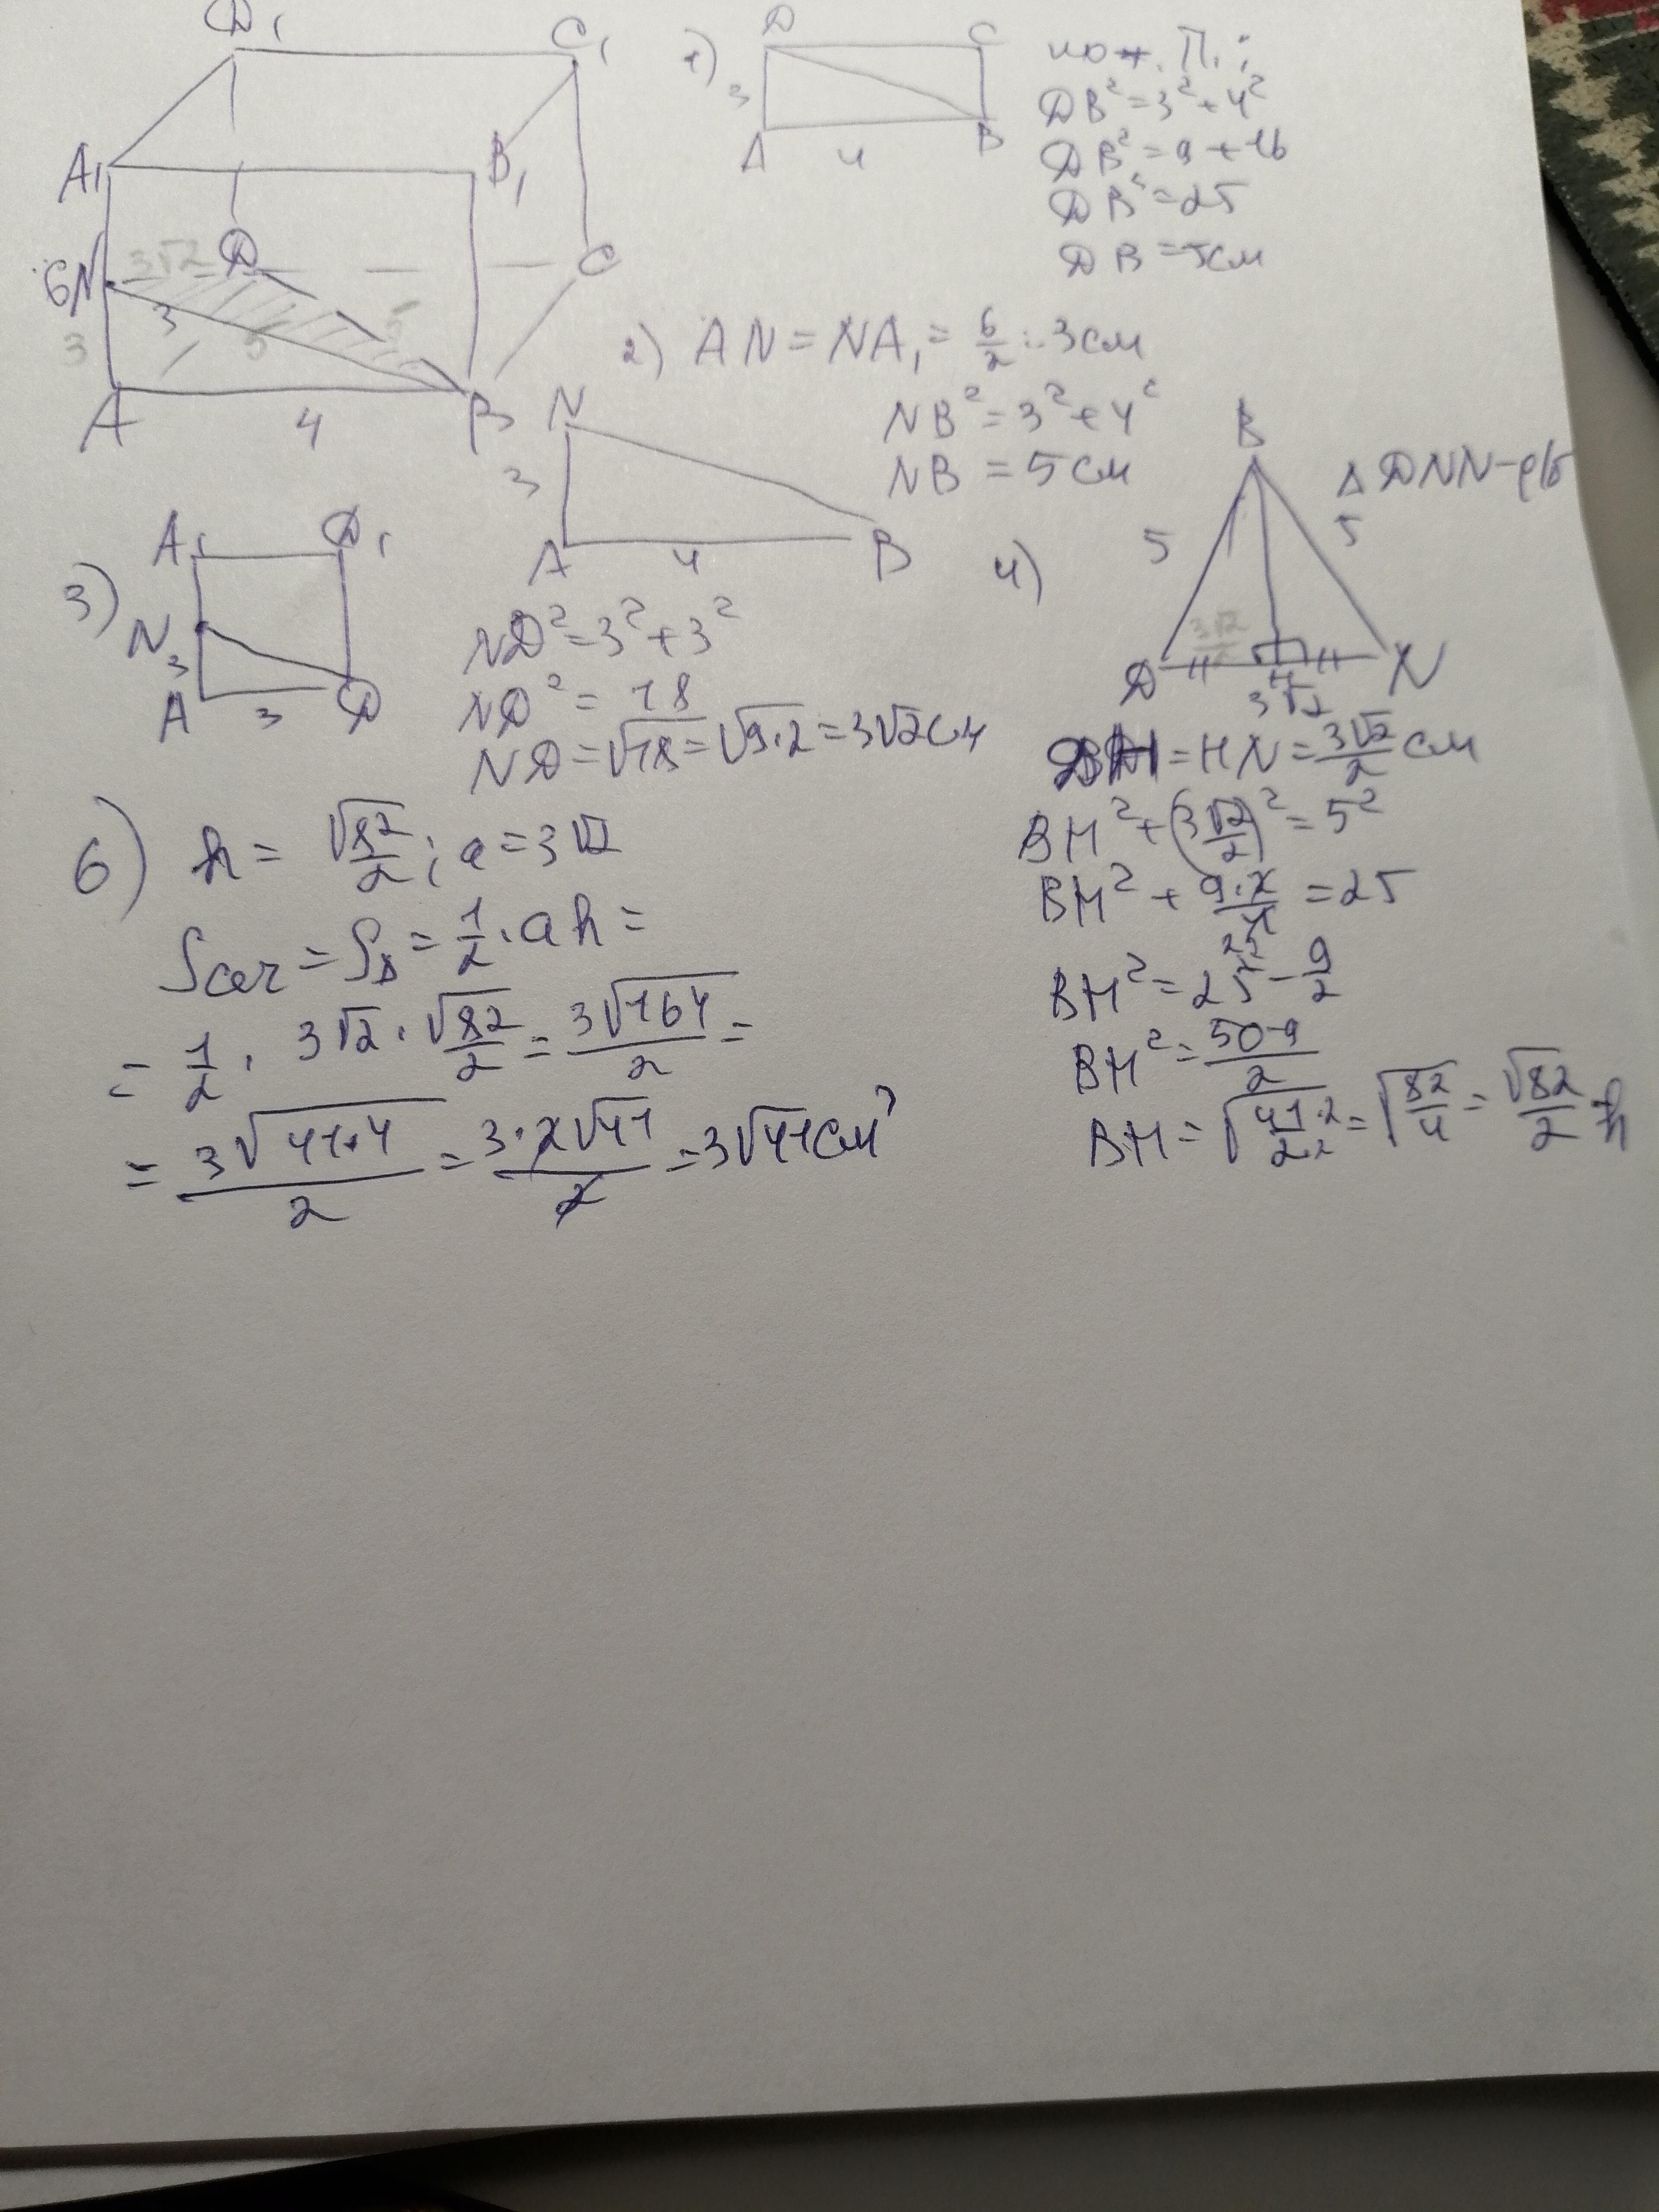 D₁ C₁
A₁ B₁
6 N 3√2 D C
3 3 5 5
A 4 B
1) D C
3
A 4 B
по т. П.:
DB²=3²+4²
DB²=9+16
DB²=25
DB=5см
2) AN=NA₁=6/2=3см
NB²=3²+4²
NB=5см
N
3
A 4 B
3) A₁ D₁
N
3
A 3 D
ND²=3²+3²
ND²=18
ND=√18=√9·2=3√2см
4) B
ΔDNN-р/б
5 5
3√2/2
D H N
3√2
DH=HN=3√2/2 см
BH²+(3√2/2)²=5²
BH²+9·2/4=25
BH²=25-9/2
BH²=50-9/2
BH=√41·2/2·2=√82/4=√82/2=h
6) h=√82/2; a=3√2
Sсеч=SΔ=1/2·ah=
=1/2·3√2·√82/2=3√164/2=
=3√41·4/2=3·2√41/2=3√41см²